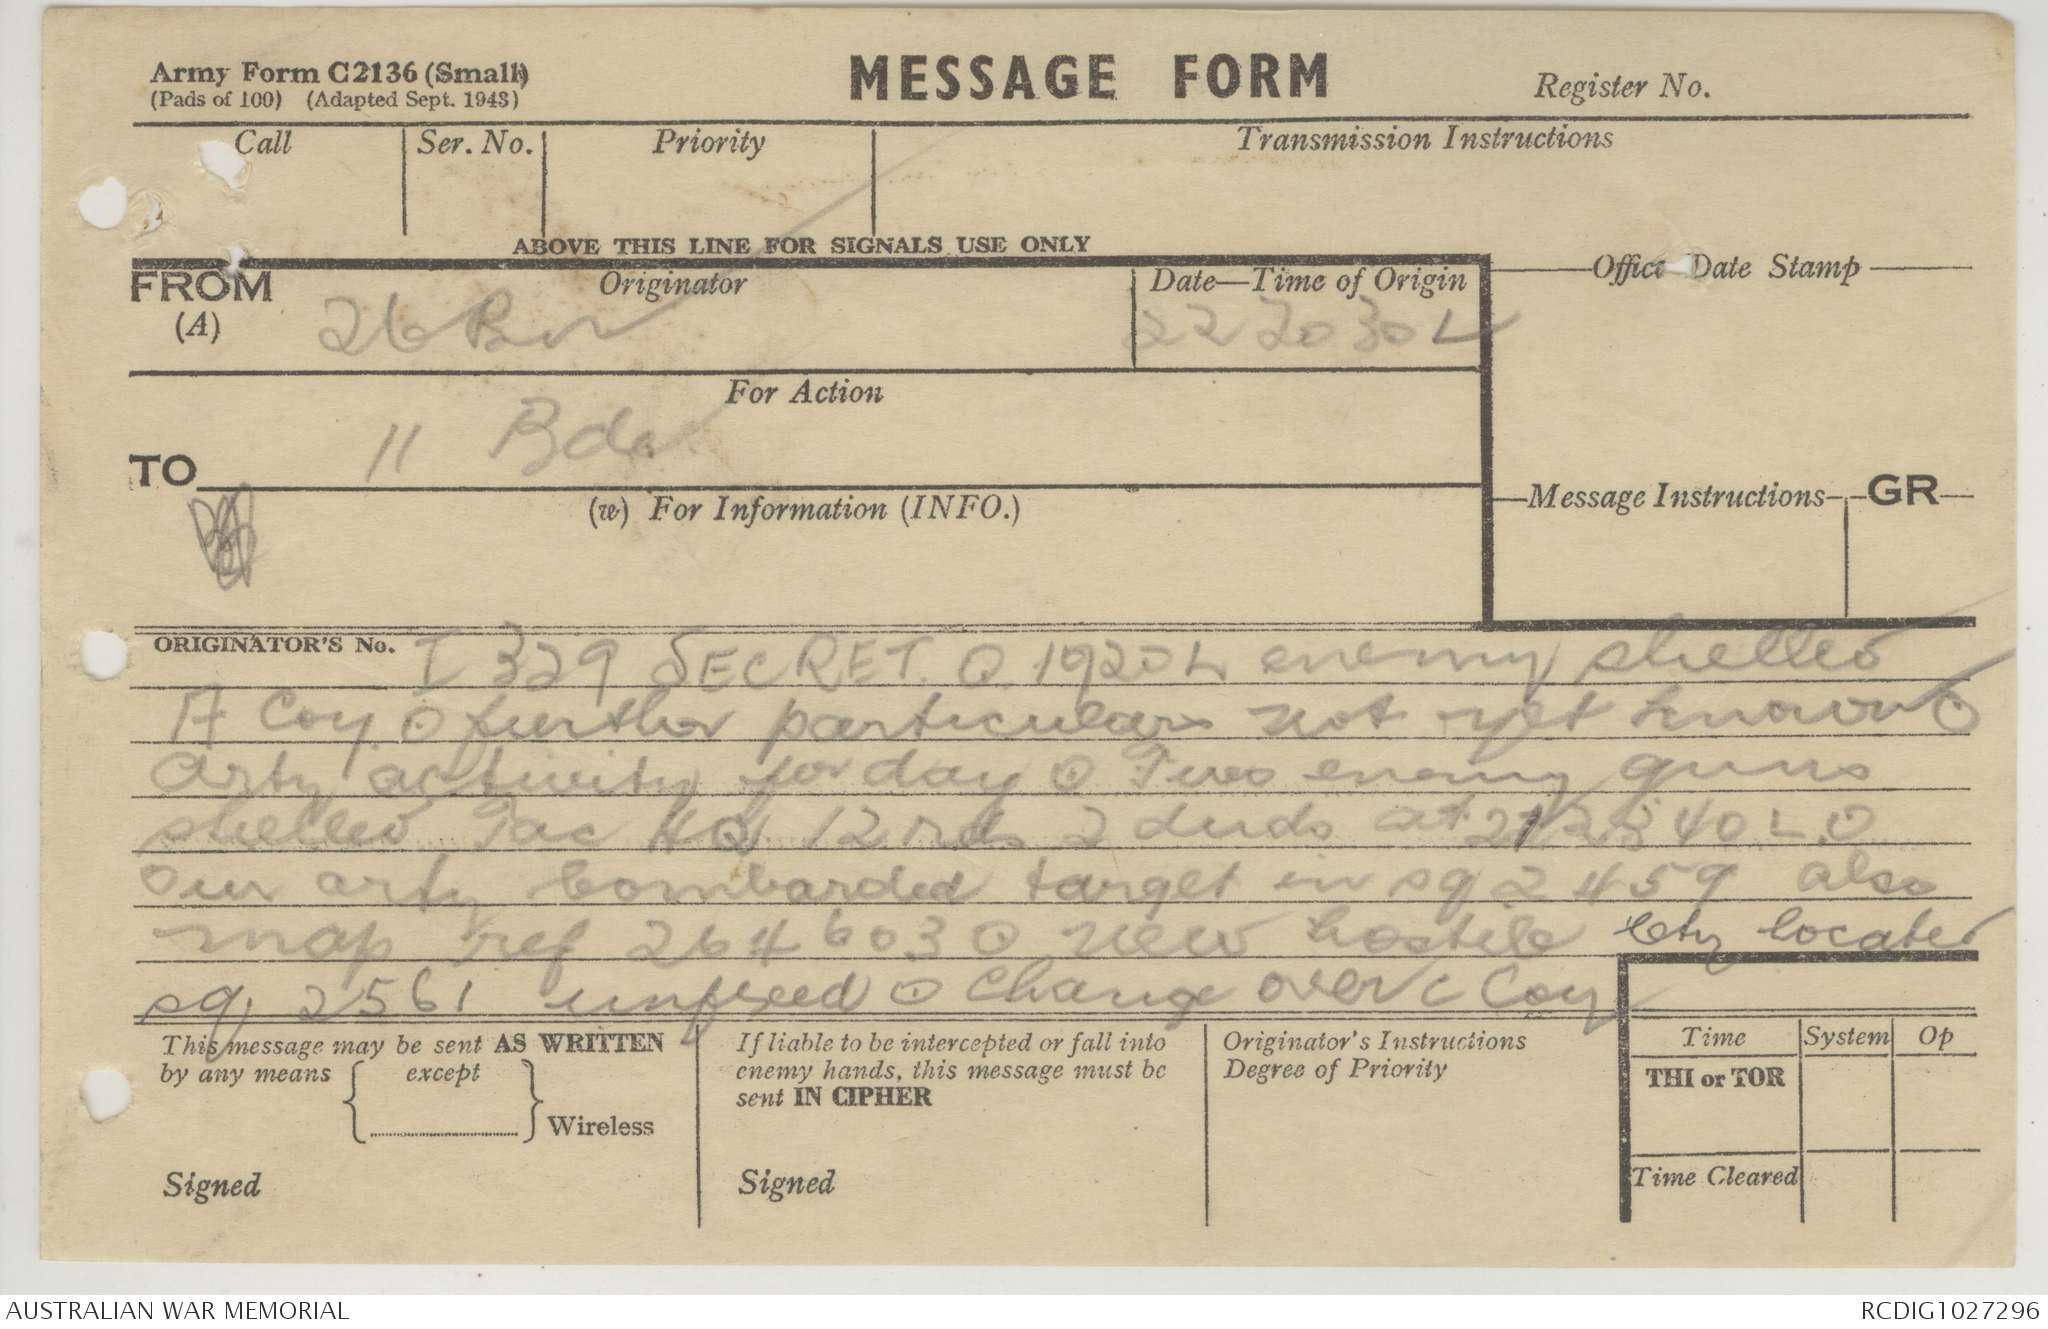 Army Form C2136 (Small)
(Pads of 100) (Adapted Sept. 1943)
MESSAGE FORM
Register No.
Call
Ser. No.
Priority
Transmission Instructions
ABOVE THIS LINE FOR SIGNALS USE ONLY
FROM
(A)
Originator
26 Bn
Date—Time of Origin
222030L
Office Date Stamp
For Action
11 Bde
TO
(w) For Information (INFO.)
Message Instructions
GR
ORIGINATOR'S No. I 329 SECRET. O 1920L enemy shelled
A Coy O further particulars not yet known O
Arty activity for day O Two enemy guns
shelled Tac HQ 12 rds 2 duds at O
Our arty bombarded target in sq 2459 also
map ref 264603 O New hostile bty located
sq 2561 O Change over C Coy
This message may be sent AS WRITTEN
by any means except
Wireless
Signed
If liable to be intercepted or fall into
enemy hands, this message must be
sent IN CIPHER
Signed
Originator's Instructions
Degree of Priority
Time
System
Op
THI or TOR
Time Cleared
AUSTRALIAN WAR MEMORIAL
RCDIG1027296